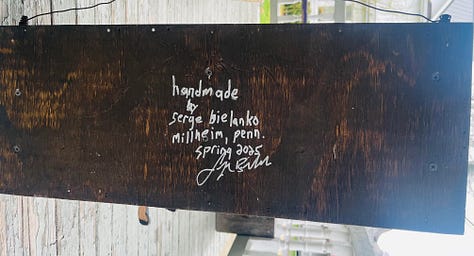 handmade
by
serge bielanko
millheim, penn.
spring 2025